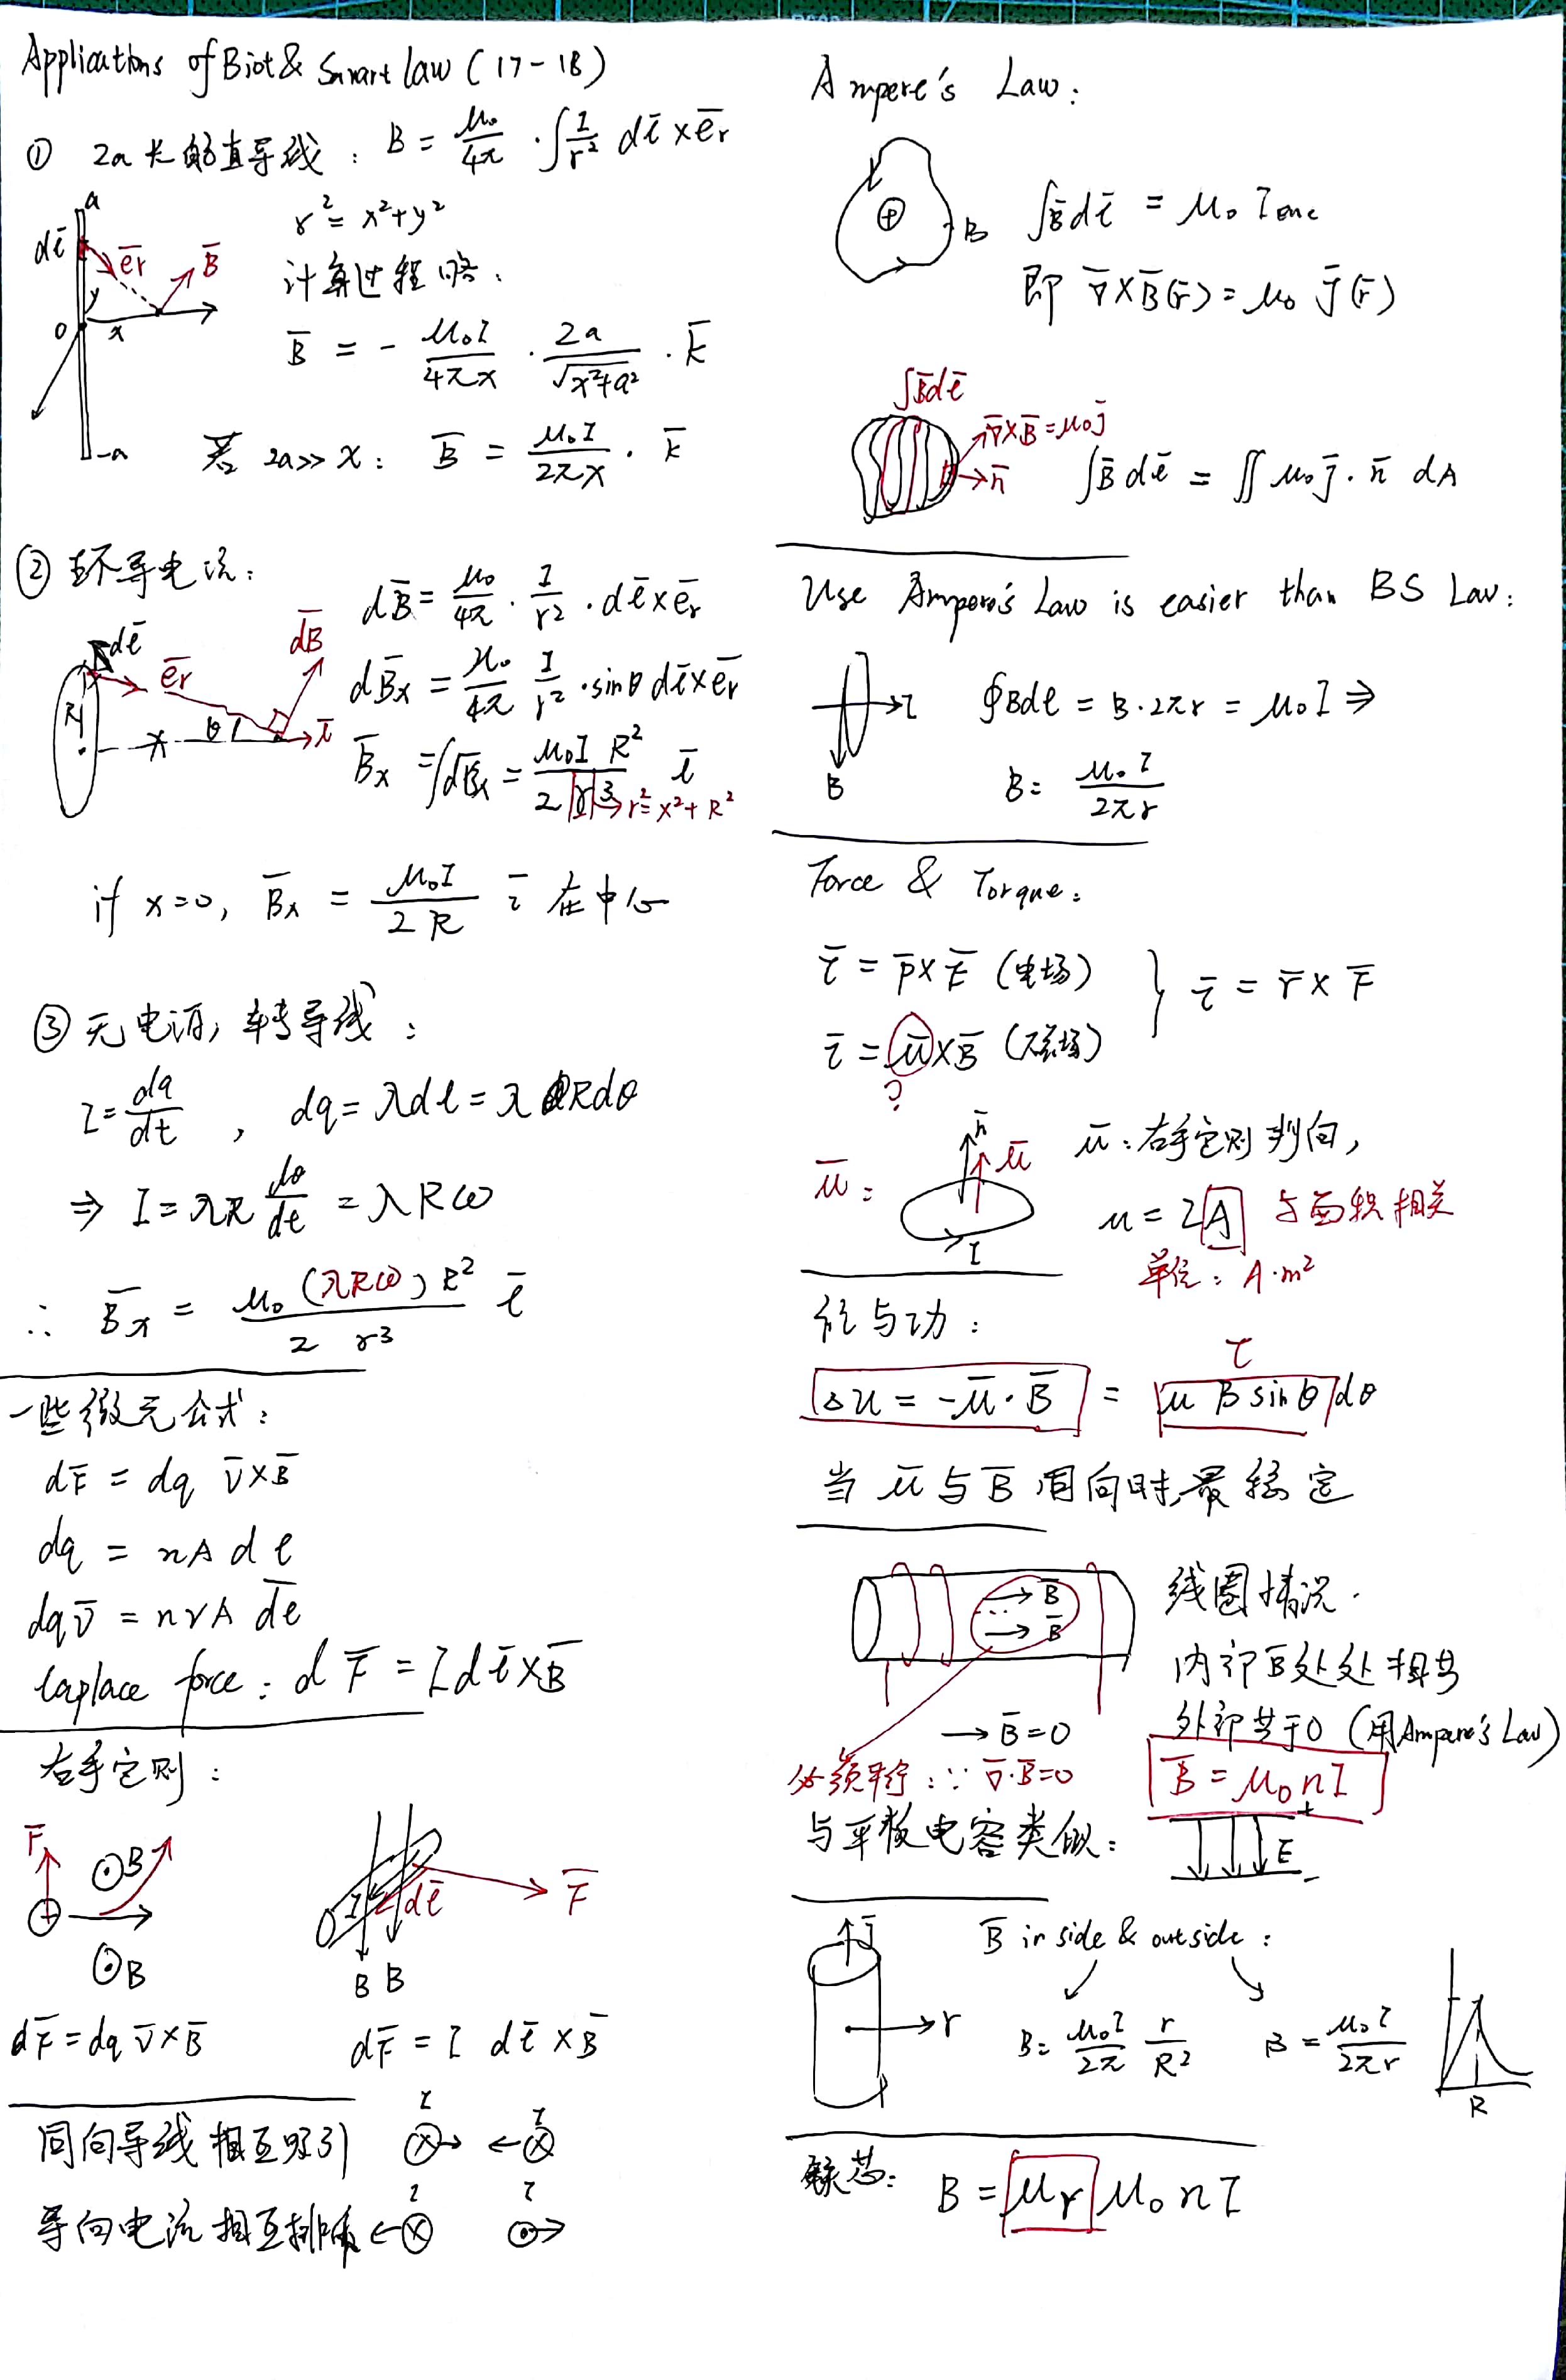 Applications of Biot & Savart Law (17-18)
① 2a长的直导线: B = μ₀/4π · ∫ I/r² dl̅ × e̅r
a
dl̅
e̅r
B̅
y
0
x
-a
r² = x² + y²
计算过程略.
B̅ = - μ₀I/4πx · 2a/√(x²+a²) · k̅
若 2a >> x: B̅ = μ₀I/2πx · k̅
② 环导电流:
dB̅ = μ₀/4π · I/r² · dl̅ × e̅r
dB̅x = μ₀/4π I/r² · sinθ dl̅ × e̅r
B̅x = ∫dB̅x = μ₀I R²/2 r³ i̅
→ r² = x² + R²
dl̅
e̅r
dB̅
R
x
θ
i̅
if x=0, B̅x = μ₀I/2R i̅ 在中心
③ 无电源, 转导线:
I = dq/dt , dq = λdl = λRdθ
⇒ I = λR dθ/dt = λRω
∴ B̅x = μ₀(λRω)R²/2 r³ i̅
一些微元公式:
dF̅ = dq v̅ × B̅
dq = nA dl
dq v̅ = nvA dl̅
laplace force: dF̅ = I dl̅ × B̅
右手定则:
F̅
⊙B
⊙B
I
dl̅
F̅
B B
dF̅ = dq v̅ × B̅
dF̅ = I dl̅ × B̅
同向导线相互吸引 I ⊗→ ←⊗ I
导向电流相互排斥 ←⊗ I I ⊙→
Ampere's Law:
B
∫B̅dl̅ = μ₀ Ienc
即 ∇̅ × B̅(r̅) = μ₀ J̅(r̅)
∫B̅dl̅
∇̅ × B̅ = μ₀j̅
n̅
∫B̅dl̅ = ∬ μ₀ j̅ · n̅ dA
Use Ampere's Law is easier than BS Law:
I
B
∮Bdl = B·2πr = μ₀I ⇒
B = μ₀I/2πr
Force & Torque:
τ̅ = p̅ × E̅ (电场)
τ̅ = μ̅ × B̅ (磁场)
} τ̅ = r̅ × F̅
?
μ̅:
n̅
μ̅
I
μ̅: 右手定则判向,
μ = IA 与面积相关
单位: A·m²
能与功:
τ
ΔU = -μ̅ · B̅ = μ B sinθ dθ
当 μ̅ 与 B̅ 同向时,最稳定
→ B̅
→ B̅
→ B̅ = 0
线圈情况.
内部B̅处处相等
外部等于0 (用Ampere's Law)
必须平行: ∵ ∇̅·B̅=0
B̅ = μ₀nI
与平板电容类似:
+
E
-
J̅
r
B̅ inside & outside:
B = μ₀I/2π r/R²
B = μ₀I/2πr
R
铁芯: B = μr μ₀ n I